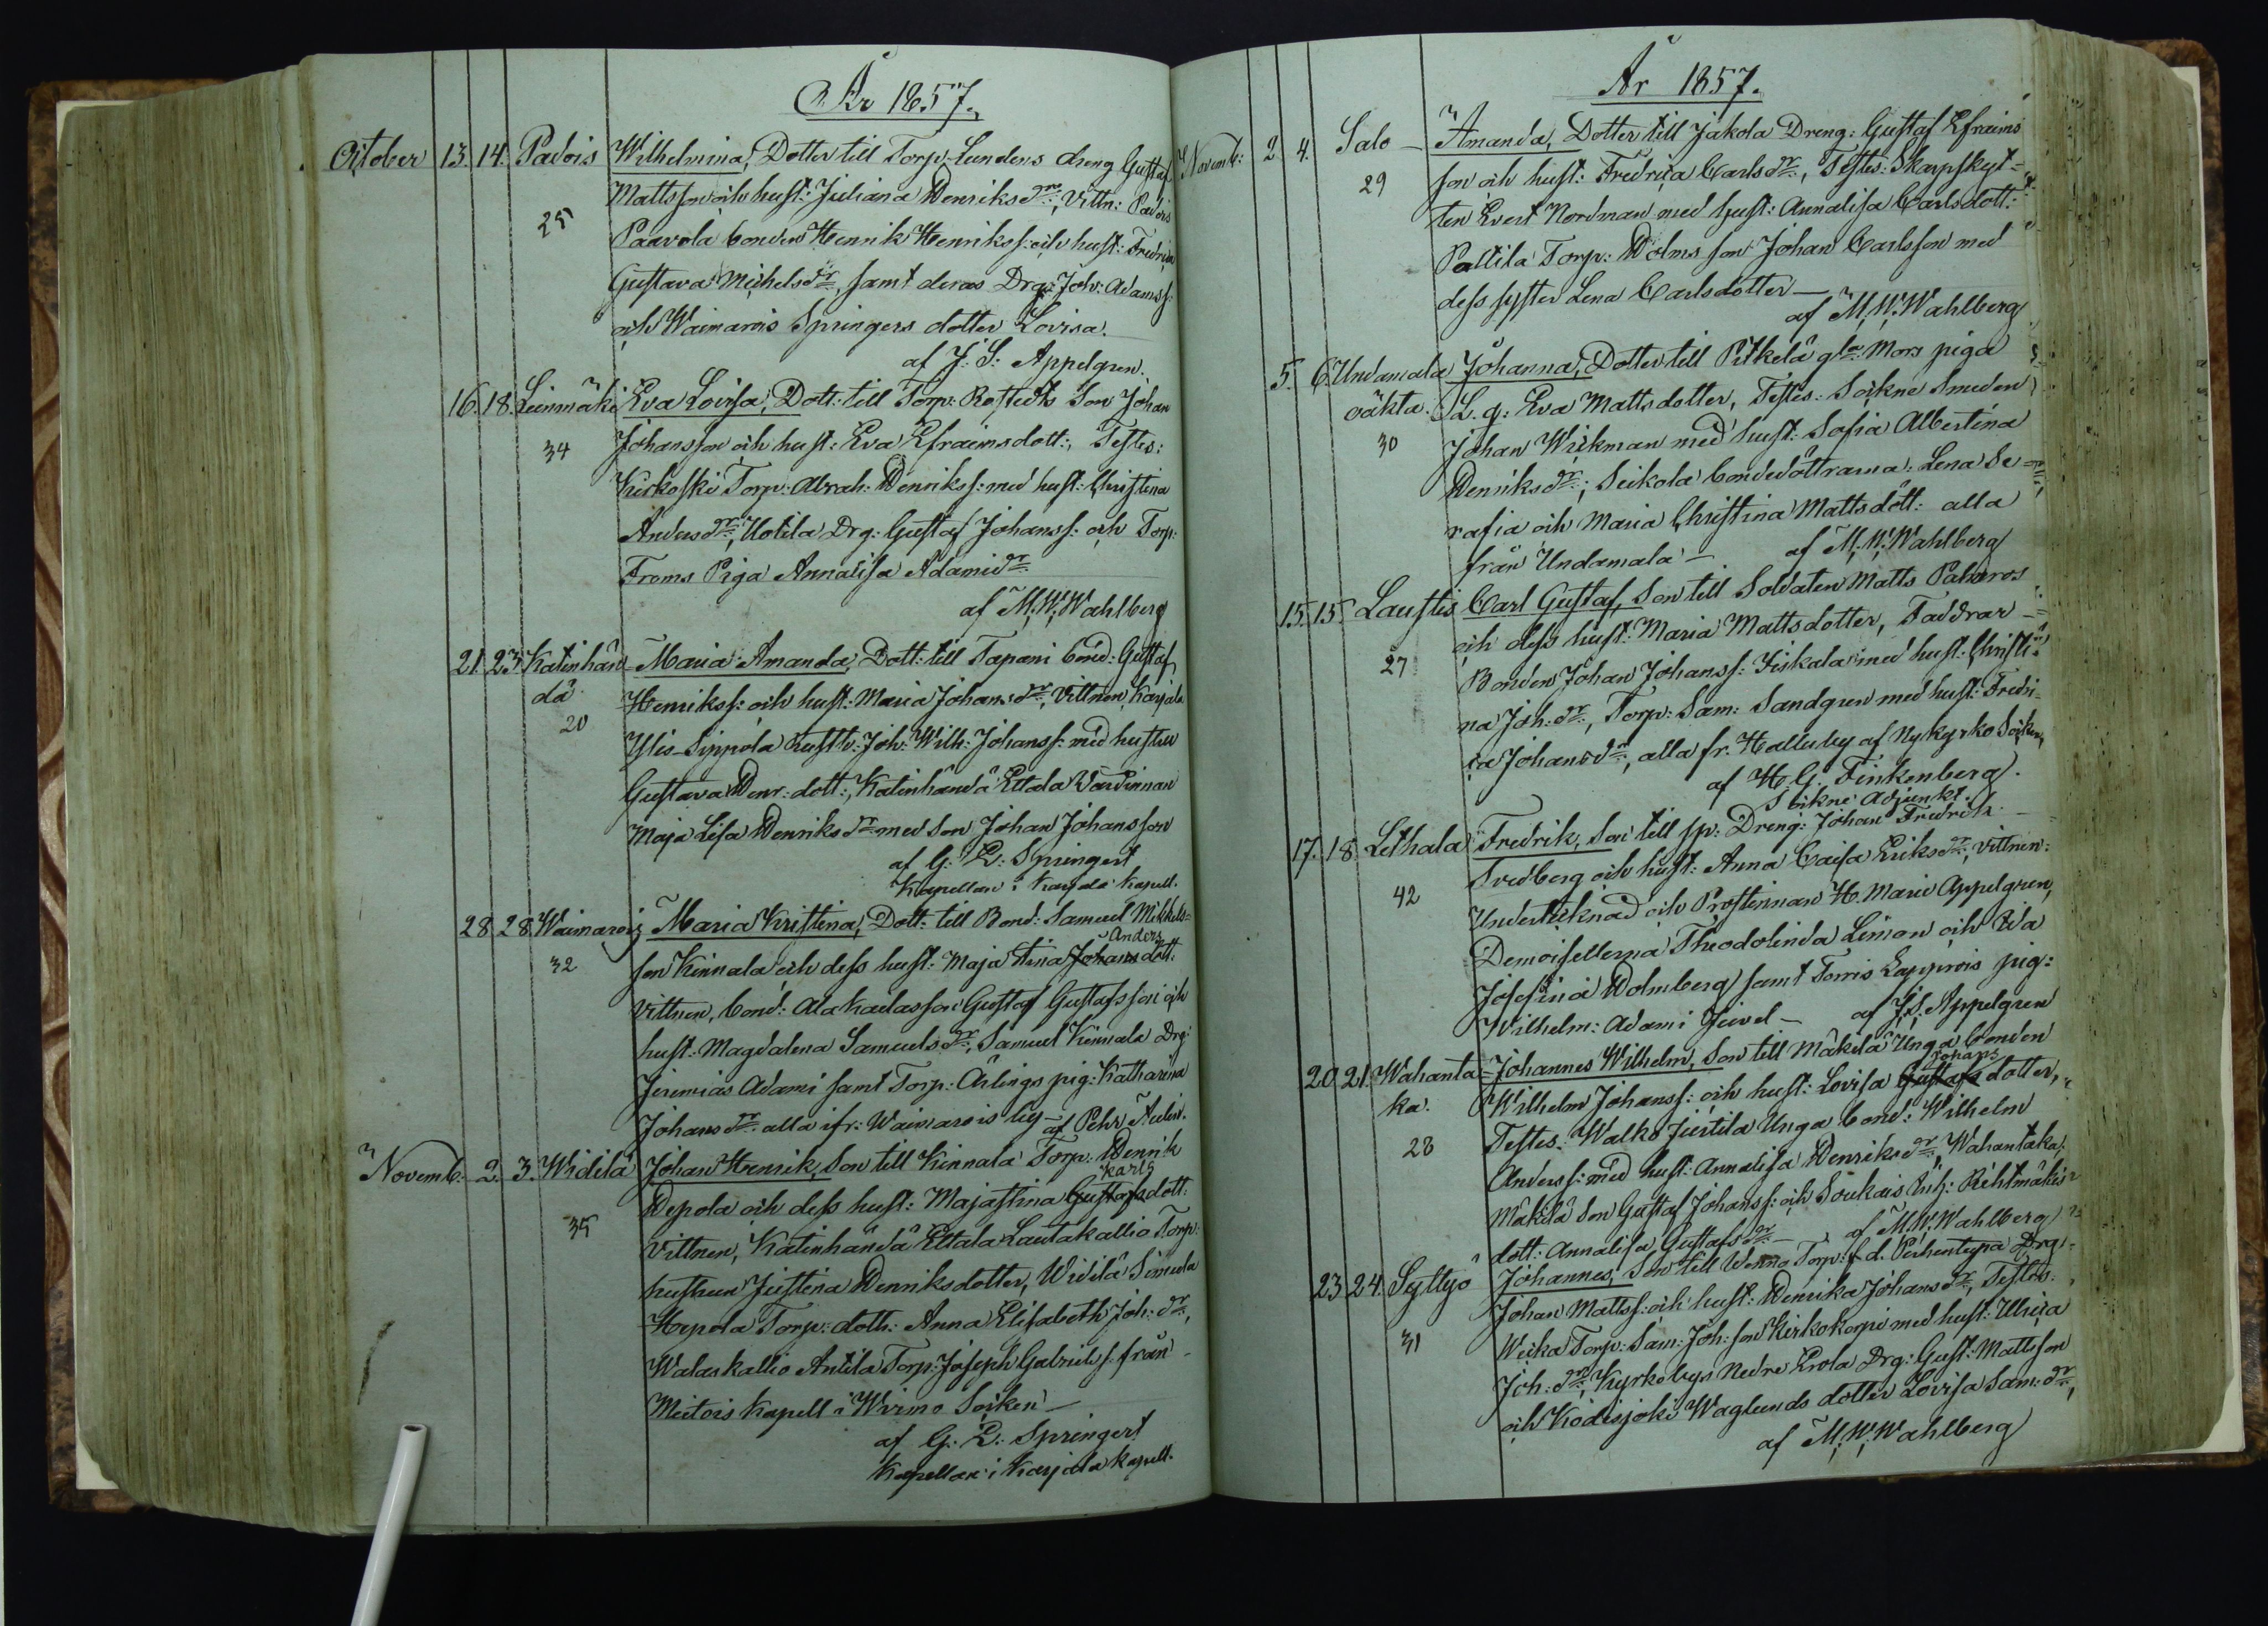 År 1857.
October 13. 14. Padois Wilhelmina, Dotter till Torp. Lundens dreng Gustaf
Mattsson och hust: Juliana Henriksdr, Vittn: Padois
25
Paavola bonden Henrik Henrikss: och hust: Fredrica
Gustava Michelsdr, samt deras Drg: Joh: Adamss:
och Waimarois Springers dotter Lovisa.
af J. S. Appelgren.
16. 18. Leinmäki Eva Lovisa, Dott: till Torp: Rostedts Son Johan
34 Johansson och hust: Eva Efraimsdott:, Testes:
Kirkoski Torp: Abrah: Henrikss: med hust: Christina
Andersdr, Uotila Drg: Gustaf Johanss: och Torp:
Froms Piga Annalisa Adamidr
af M. W. Wahlberg
21. 23. Katinhän Maria Amanda, Dott: till Tapani bond: Gustaf
dä Henrikss: och hust: Maria Johansdr, Vittnen, Karjala
20
Ylis-Sippola Joh: Wilh: Johanss: med hustru
Gustava Henr: dott:, Katinhändä Ettala Värdinnan
Maja Lisa Henriksdr med Son Johan Johansson
af G: E: Springert
Kapellan i Karjala kapell.
28. 28. Waimarois Maria Kristina, Dott: till Bond: Samuel Mikkels=
Anders
32 son Kinnala och dess hust: Maja Stina Johans dott:
Vittnen, bond: Alakaelasson Gustaf Gustafsson och
hust: Magdalena Samuelsdr, Samuel Kinnala Drg:
Jeremias Adami samt Torp: Ärlings pig: Katharina
Johansdr alla ifr: Waimarois by af Pehr Aulin.
Novemb. 2. 3. Widilä Johan Henrik, Son till Kinnala Torp: Henrik
Karls
Hepola och dess hust: Majastina Gustafsdott:
35 Vittnen, Katinhändä Ettala Lautakallio Torp:
hustrun Justina Henriksdotter, Widilä Simula
Hepola Torp: dott: Anna Elisabeth Joh: dr,
Walaskallio Antila Torp: Joseph Gabriels: från
Mietois Kapell i Wirmo Socken
af G: E: Springert
Kapellan i Karjala kapell.
År 1857.
Novemb: 2. 4. Salo Amanda, Dotter till Jakola Dreng: Gustaf Efraims
29 son och hust: Fredrica Carlsdr, Testes: Skarpskyt=
ten Evert Nordman med hust: Annalisa Carlsdott:
Pattila Torp: Holms son Johan Carlsson med
dess syster Lena Carlsdotter
af M. W. Wahlberg
5. 6. Undamala Johanna, Dotter till Pitkelä gla Mors piga
oäkta. L. q: Eva Mattsdotter, Testes: Sockne Smeden
30 Johan Wickman med hust: Sofia Albertina
Henriksdr, Seikola bondedöttrarna: Lena Se=
rafia och Maria Christina Mattsdött: alla
från Undamala af M. W. Wahlberg
15. 15. Laustis Carl Gustaf, Son till Soldaten Matts
och dess hust: Maria Mattsdotter, Faddrar
27 Bonden Johan Johanss: Jiskala med hust: Christi=
na Joh: dr, Torp: Sam: Sandgren med hust: Fredri=
ca Johansdr, alla fr: Halluby af Nykyrko Socken,
af H. G. Finkenberg.
Sockne Adjunkt.
17. 18. Lethala Fredrik, Son till sp: Dreng: Johan Fredrik
Tredberg och hust: Anna Caisa Eriksdr, Vittnen:
42 Undertecknad och Prostinnan H. Maria Appelgren,
Demoisellerna Theodolinda Limon och Ida
Josefina Holmberg samt Torris Lapprois pig:
Wilhelm: Adami Juvel af J. S. Appelgren
20. 21. Wahanta= Johannes Wilhelm, Son till Mäkilä Unga bonden
Johans
ka. Wilhelm Johanss: och hust: Lovisa Gustafs dotter,
28 Testes: Walko Juttila Unga bond: Wilhelm
Anderss: med hust: Annalisa Henriksdr, Wahantaka,
Mäkilä Son Gustaf Johanss: och Soukais Inh: Rihtmäkis
dott: Annalisa Gustafsdr af M. W. Wahlberg
23. 24. Syttyö Johannes, Son till Wenno Torp: f. d. Perhentupa Drg:
Johan Mattss: och hust: Henrika Johansdr, Testes:
31 Weika Torp: Sam: Joh: son Kirkokorpi med hust: Ulrica
Joh: dr, Kyrkobys Nedre Erola Drg: Gust: Mattsson
och Kodisjoki Waglunds dotter Lovisa Sam: dr,
af M. W. Wahlberg